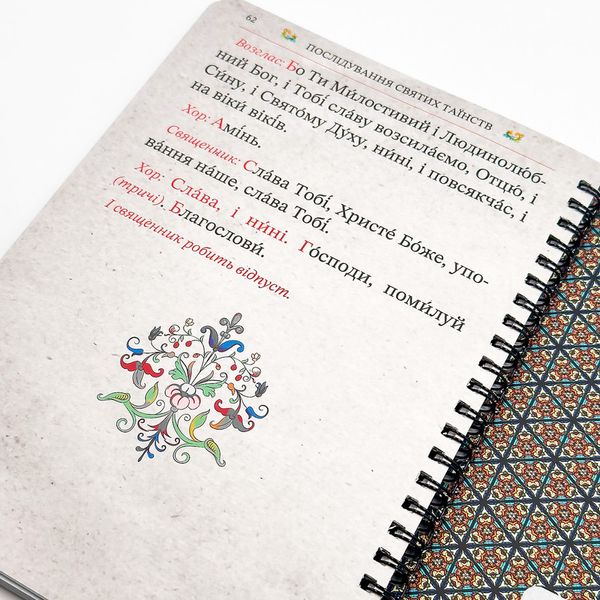 62
ПОСЛІДУВАННЯ СВЯТИХ ТАЇНСТВ
Возглас: Бо Ти Ми́лостивий і Людинолю́б-
ний Бог, і Тобі́ сла́ву возсила́ємо, Отцю́, і
Си́ну, і Свято́му Ду́ху, ни́ні, і повсякча́с, і
на ві́ки ві́ків.
Хор: Амі́нь.
Священник: Сла́ва Тобі́, Христе́ Бо́же, упо-
ва́ння на́ше, сла́ва Тобі́.
Хор: Сла́ва, і ни́ні. Го́споди, поми́луй
(тричі). Благослови́.
І священник робить відпуст.